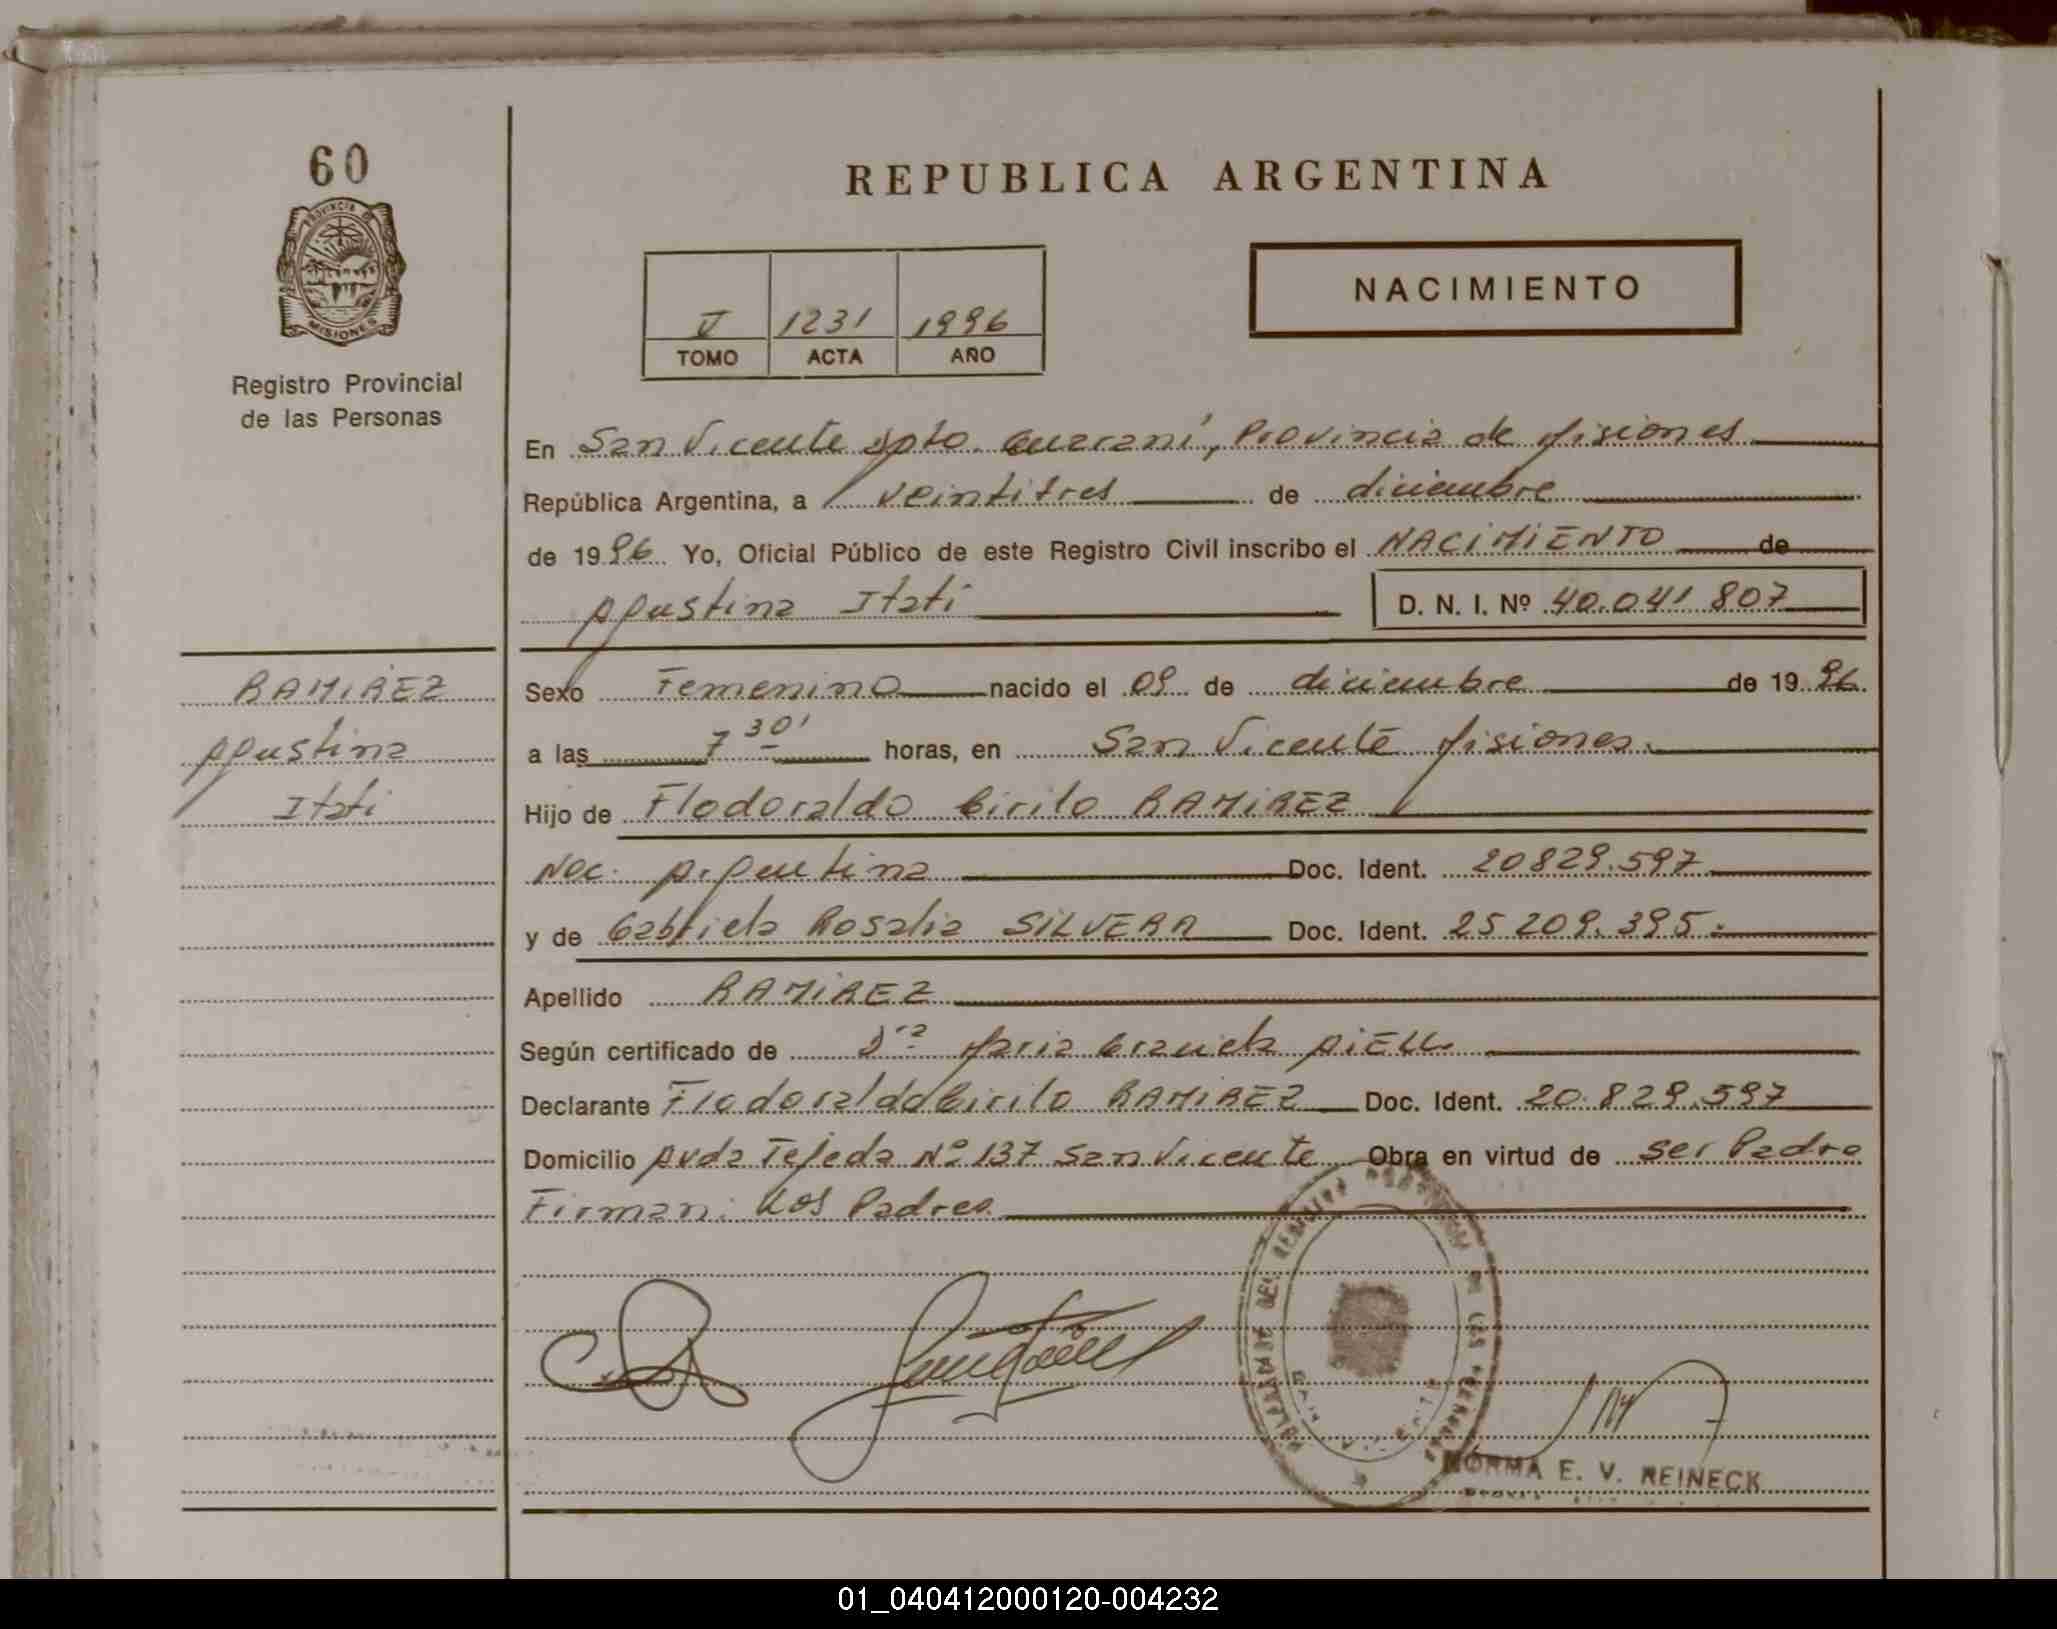 60
PROVINCIA DE
MISIONES
Registro Provincial
de las Personas
RAMIREZ
Agustina
Itatí
REPUBLICA ARGENTINA
V 1231 1996
TOMO ACTA AÑO
NACIMIENTO
En San Vicente Dpto. Guaraní, Provincia de Misiones
República Argentina, a veintitres de diciembre
de 1996 Yo, Oficial Público de este Registro Civil inscribo el NACIMIENTO de
Agustina Itatí D. N. I. Nº 40.041 807
Sexo Femenino nacido el 09 de diciembre de 1996.
a las 7 30' horas, en San Vicente Misiones.
Hijo de Flodoraldo Cirilo RAMIREZ
Nac. Argentina Doc. Ident. 20829.597
y de Gabriela Rosalia SILVERA Doc. Ident. 25 209.395.
Apellido RAMIREZ
Según certificado de Dra Maria Graciela
Declarante Flodoraldo Cirilo RAMIREZ Doc. Ident. 20.829.597
Domicilio Avda Tejeda Nº 137 San Vicente Obra en virtud de ser Padre
Firman: Los Padres
DEL REGISTRO PROVINCIAL DE LAS PERSONAS
SAN VICENTE
NORMA E. V. REINECK
01_040412000120-004232